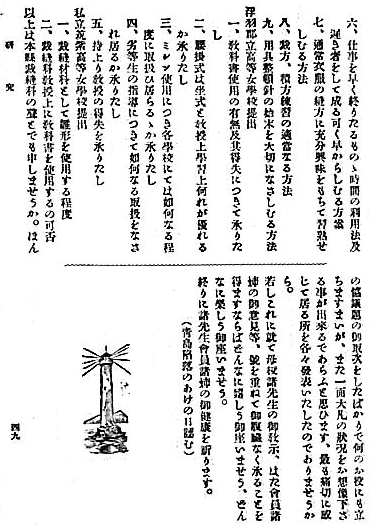 六、仕事を早く終りたるものゝ時間の利用法及
遲き者をして成る可く早からしむる方案
七、通常衣服の縫方に充分興味をもちて習熟せ
しむる方法
八、裁方、積方練習の適當なる方法
九、用具整頓針の始末を大切になさしむる方法
浮羽郡立高等女學校提出
一、教科書使用の有無及其得失につきて承りた
し
二、腰掛式は坐式と教授上學習上何れが優れる
か承りたし
三、ミシン使用につき各學校にては如何なる程
度に取扱ひ居らるゝか承りたし
四、劣等生の指導につきて如何なる取扱をなさ
れ居るか承りたし
五、持上り教授の得失を承りたし
私立筑紫高等女學校提出
一、裁縫材料として雛形を使用する程度
二、裁縫科教授上に教科書を使用するの可否
以上は本縣裁縫科の聲とでも申しませうか。ほん
研究
の協議題の御取次をしたばかりで何の御役にも立
ちますまいが、また一面大凡の狀況を御想像下さ
る事が出來るであらふと思ひます、最も痛切に感
じて居る所を各々發表いたしたのでありますか
ら。
若しこれに就て母校諸先生の御敎示、はた會員諸
姉の御意見等、號を重ねて御腹臓なく承ることを
得ますならばどんなに嬉しう御座いませう、どん
なに樂しう御座いませう。
終りに諸先生會員諸姉の御健康を祈ります。
(青島陷落のあけの日認む)
四九